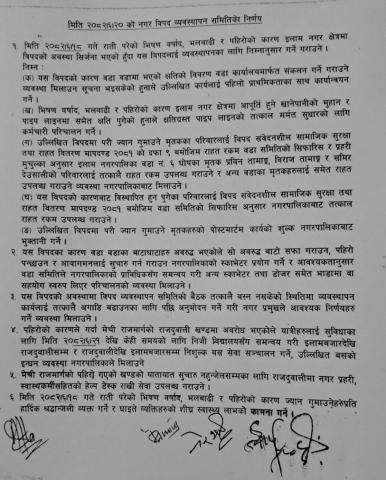 मिति २०८२/६/२० को नगर विपद व्यवस्थापन समितिको निर्णय
१. मिति २०८२/६/१८ गते राती परेको भिषण वर्षाद, भलबाढी र पहिरोको कारण इलाम नगर क्षेत्रमा
विपदको अवस्था सिर्जना भएको हुँदा यस विपदलाई व्यवस्थापनका लागि निम्नानुसार गर्ने गराउने।
निम्न :
(क) यस विपदको कारण वडा वडामा भएको क्षतिको विवरण वडा कार्यालयमार्फत संकलन गर्ने गराउने
व्यवस्था मिलाउन सूचना भइसकेको हुनाले उल्लिखित कार्यलाई पहिलो प्राथमिकताका साथ कार्यान्वयन
गर्ने।
(ख) भिषण वर्षाद, भलबाढी र पहिरोको कारण इलाम नगर क्षेत्रमा आपूर्ति हुने खानेपानीको मुहान र
पाइप लाइनमा समेत क्षति पुगेको हुनाले क्षतिग्रस्त पाइप लाइनको तत्काल मर्मत सुधारको लागि
कर्मचारी परिचालन गर्ने।
(ग) उल्लिखित विपदमा परी ज्यान गुमाउने मृतकका परिवारलाई विपद संवेदनशील सामाजिक सुरक्षा
तथा राहत वितरण मापदण्ड २०८१ को दफा ९ बमोजिम राहत रकम वडा समितिको सिफारिस र प्रहरी
मुचुल्का अनुसार इलाम नगरपालिका वडा नं. ६ घोषका मृतक प्रविन तामाङ्ग, विराज तामाङ्ग र समिर
देउसालीको परिवारलाई तत्कालै राहत रकम उपलब्ध गराउने र अन्य वडाका मृतकहरुलाई समेत राहत
उपलब्ध गराउने व्यवस्था नगरपालिकाबाट मिलाउने।
(घ) यस विपदको कारणबाट विस्थापित हुन पुगेका परिवारलाई विपद संवेदनशील सामाजिक सुरक्षा तथा
राहत वितरण मापदण्ड २०८१ बमोजिम वडा समितिको सिफारिस अनुसार नगरपालिकाबाट तत्काल
राहत रकम उपलब्ध गराउने।
(ङ) उल्लिखित विपदमा परी ज्यान गुमाउने मृतकहरुको पोस्टमार्टम कार्यको शुल्क नगरपालिकाबाट
भुक्तानी गर्ने।
२. यस विपदका कारण वडा वडाका बाटाघाटाहरु अवरुद्ध भएकोले सो अवरुद्ध बाटो सफा गराउन, पहिरो
पन्छाउन र आवागमनलाई सुचारु गर्न गराउन नगरपालिकाको स्काभेटर प्रयोग गर्ने र आवश्यकतानुसार
वडा समितिले नगरपालिकाको प्राविधिकसँग समन्वय गरी अन्य स्काभेटर तथा डोजर समेत भाडामा वा
सहयोग स्वरुप लिएर परिचालनको व्यवस्था मिलाउने।
३. यस विपदको अवस्थामा विपद व्यवस्थापन समितिकै बैठक तत्कालै बस्न नसकेको स्थितिमा व्यवस्थापन
कार्यलाई तत्कालै अगाडि बढाउनका लागि पछि अनुमोदन गर्ने गरी नगर प्रमुखले आवश्यक निर्णयहरु
गर्ने व्यवस्था मिलाउने।
४. पहिरोको कारणले गर्दा मेची राजमार्गको राजदुवाली खण्डमा अवरोध भएकोले यात्रीहरुलाई सुविधाका
लागि मिति २०८२/६/२१ देखि केही समयको लागि निजी विद्यालयसँग समन्वय गरी इलामबजारदेखि
राजदुवालीसम्म र राजदुवालीदेखि इलामबजारसम्म निशुल्क बस सेवा सञ्चालन गर्ने, उल्लिखित बसको
इन्धन व्यवस्था नगरपालिकाले मिलाउने
५. मेची राजमार्गको पहिरो गएको खण्डको यातायात सुचारु नहुन्जेलसम्मका लागि राजदुवालीमा नगर प्रहरी,
स्वास्थकर्मीसहितको हेल्प डेस्क राखी सेवा उपलब्ध गराउने।
६ मिति २०८२/६/१८ गते राती परेको भिषण वर्षाद, भलबाढी र पहिरोको कारण ज्यान गुमाउनेहरुप्रति
हार्दिक श्रद्धान्जली व्यक्त गर्ने र घाइते व्यक्तिहरुको शीघ्र स्वास्थ्य लाभको कामना गर्ने।